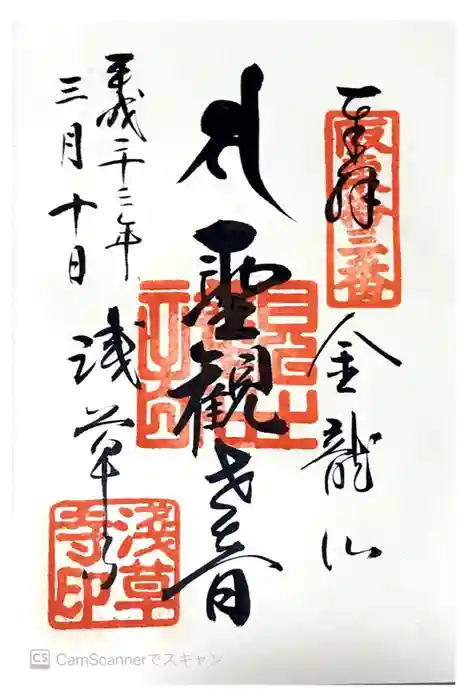 奉拝
坂東十三番
金龍山
聖観世音
浅草寺
平成二十三年
三月十日
淺草寺印
CS CamScannerでスキャン